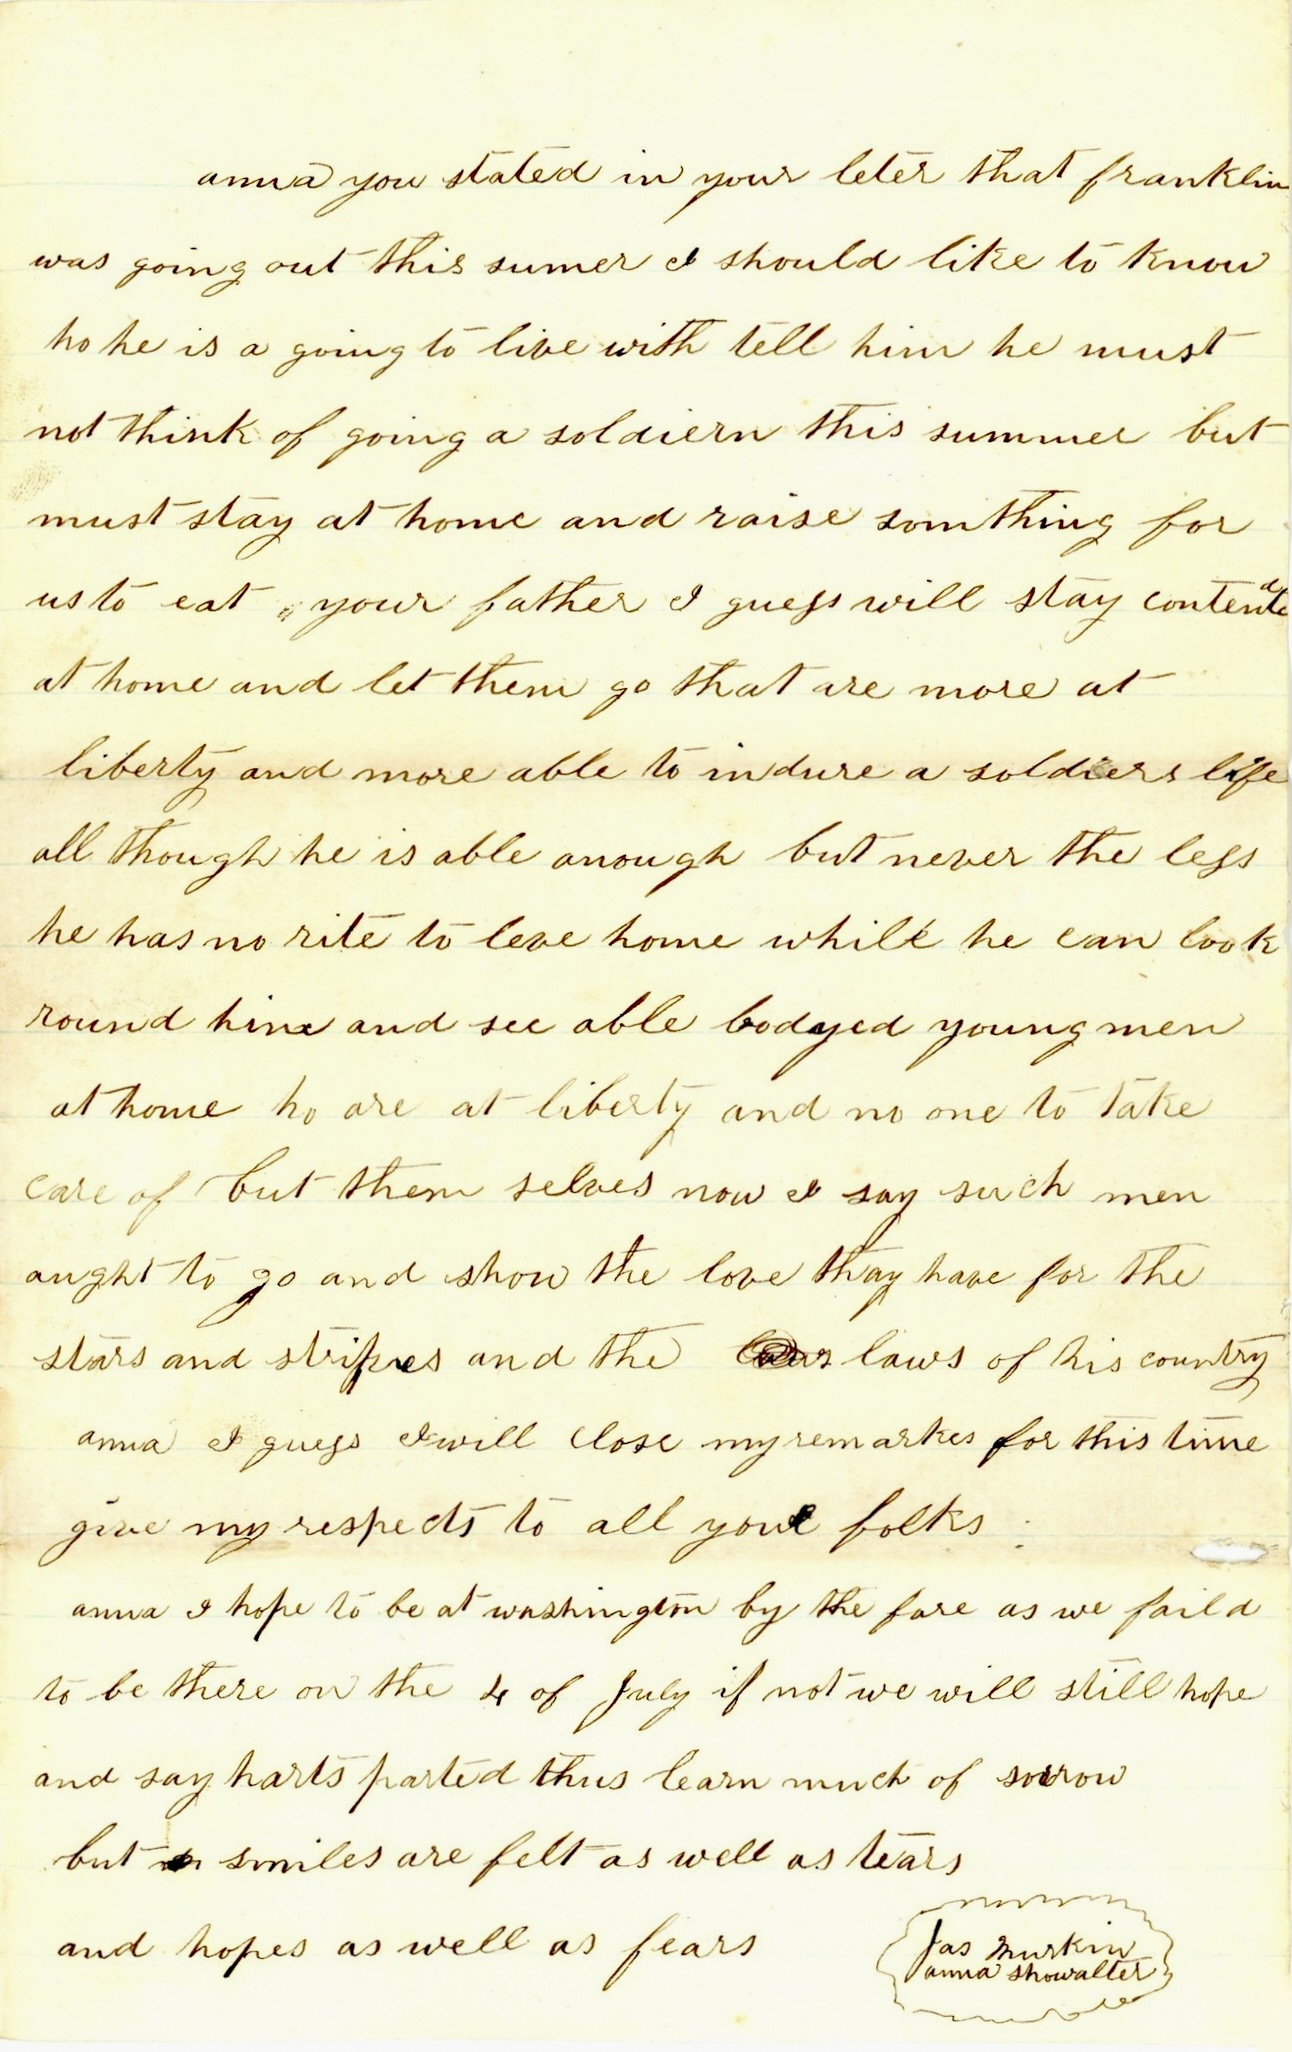 anna you stated in your leter that franklin
was going out this sumer I should like to know
ho he is a going to live with tell him he must
not think of going a soldiern this summer but
must stay at home and raise somthing for
us to eat " your father I guess will stay contente
at home and let them go that are more at
liberty and more able to indure a soldiers life
all though he is able anough but never the less
he has no rite to leve home while he can look
round him and see able bodyed young men
at home ho are at liberty and no one to take
care of but them selves now I say such men
aught to go and show the love thay have for the
stars and stripes and the laws of his country
anna I guess I will close my remarkes for this time
give my respects to all your folks
anna I hope to be at washington by the fare as we faild
to be there on the 4 of July if not we will still hope
and say harts parted thus learn much of sorrow
but smiles are felt as well as tears
and hopes as well as fears
Jas Murkin
anna showalter